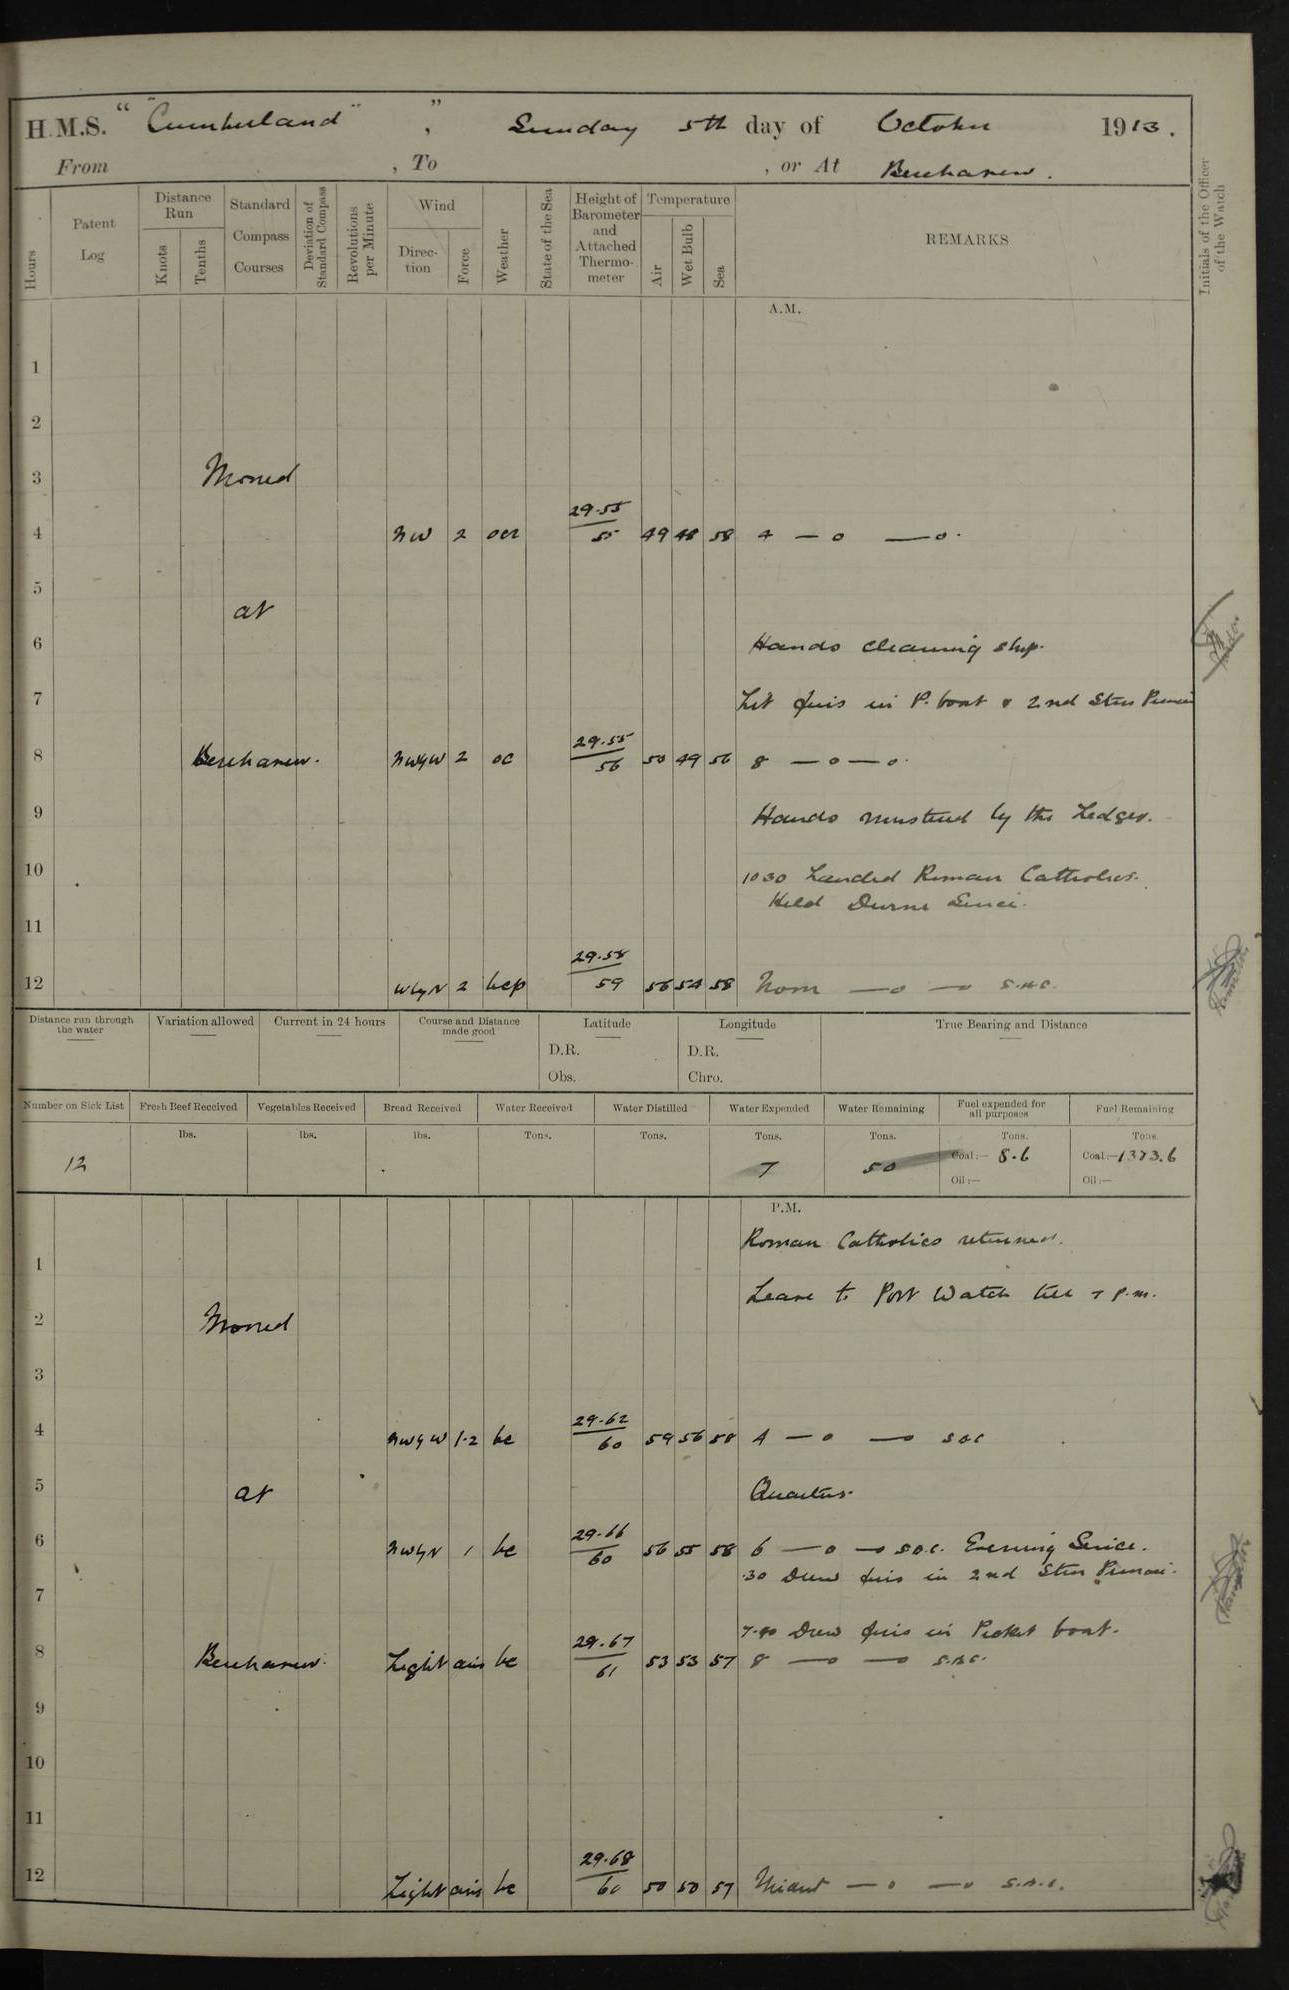 H.M.S. "Cumberland", Sunday 5th day of October 1913.
From , To , or At Berehaven.
Hours
Patent Log
Distance Run
Knots
Tenths
Standard Compass Courses
Deviation of Standard Compass
Revolutions per Minute
Wind
Direction
Force
Weather
State of the Sea
Height of Barometer and Attached Thermometer
Temperature
Air
Wet Bulb
Sea
REMARKS
Initials of the Officer of the Watch
A.M.
1
2
3 Moored
4 NW 2 ocr 29.55/55 49 48 58 4 — o — o.
5
at
6 Hands cleaning ship.
7 Lit fires in P. boat & 2nd Stm Pinnace
8 Berehaven. NWyW 2 oc 29.55/56 50 49 56 8 — o — o.
9 Hands mustered by the Ledger.
10 1030 Landed Roman Catholics.
Held Divine Service.
11
12 WbyN 2 bcp 29.58/59 56 54 58 Noon — o — o S.A.C.
Distance run through the water
Variation allowed
Current in 24 hours
Course and Distance made good
Latitude
D.R.
Obs.
Longitude
D.R.
Chro.
True Bearing and Distance
Number on Sick List
Fresh Beef Received
Vegetables Received
Bread Received
Water Received
Water Distilled
Water Expended
Water Remaining
Fuel expended for all purposes
Fuel Remaining
lbs. lbs. lbs. Tons. Tons. Tons. Tons. Tons. Tons.
12 7 50 Coal:— 8.6 Coal:— 1373.6
Oil:— Oil:—
P.M.
Roman Catholics returned.
1
Leave to Port Watch till 7 p.m.
2 Moored
3
4 NWyW 1-2 bc 29.62/60 59 56 58 4 — o — o S.A.C
5 at Quarters.
6 NWyN 1 bc 29.66/60 56 55 58 6 — o — o S.A.C. Evening Service.
.30 Drew fires in 2nd Stm Pinnace.
7
7.40 Drew fires in Picket boat.
8 Berehaven. Light airs bc 29.67/61 53 53 57 8 — o — o S.A.C.
9
10
11
12 Light airs bc 29.68/60 50 50 57 Midnt — o — o S.A.C.